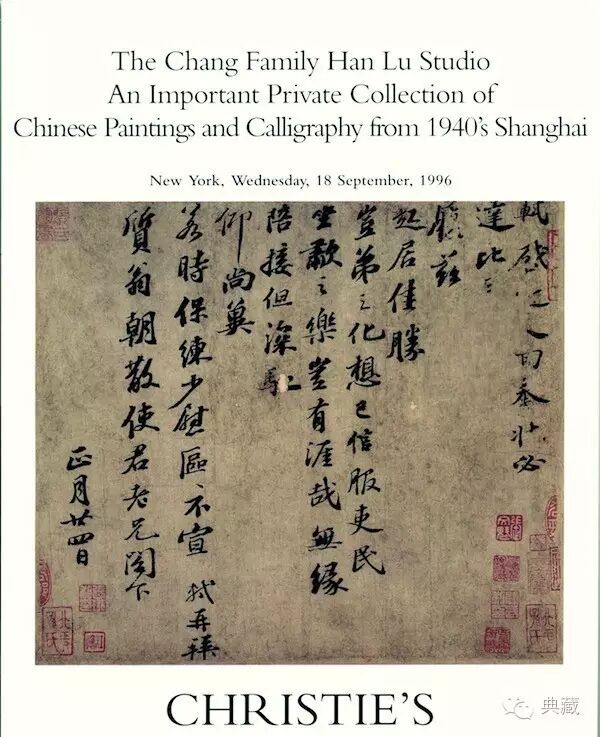 The Chang Family Han Lu Studio
An Important Private Collection of
Chinese Paintings and Calligraphy from 1940's Shanghai
New York, Wednesday, 18 September, 1996
軾啟近人回奉狀必
達比日
履茲
起居佳勝
豈弟之化想已信服吏民
坐歗之樂豈有涯哉無緣
陪接但深馳
仰尚冀
若時保練少慰區〻不宣 軾再拜
質翁朝散使君老兄閣下
正月廿四日
CHRISTIE'S
典藏